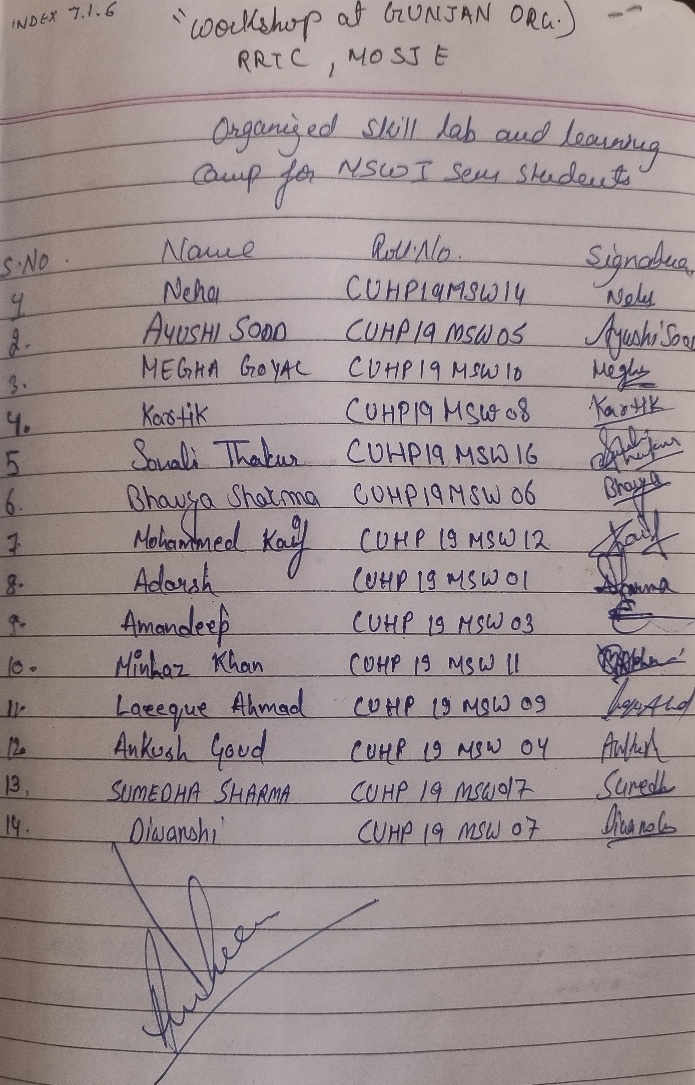 INDEX 7.1.6
"Workshop at GUNJAN ORG.)
RRTC, MOSJE
Organized skill lab and learning
Camp for MSW I Sem Students
S.No. Name Roll.No. Signature
1 Neha CUHP19MSW14 Neha
2. AYUSHI SOOD CUHP19MSW05 Ayushi Sood
3. MEGHA GOYAL CUHP19MSW10 Megha
4. Kartik CUHP19MSW08 Kartik
5 Sonali Thakur CUHP19MSW16 Thakur
6. Bhavya Sharma CUHP19MSW06 Bhavya
7 Mohammed Kaif CUHP19MSW12 Kaif
8. Adarsh CUHP19MSW01 Sharma
9. Amandeep CUHP19MSW03
10. Minhaz Khan CUHP19MSW11
11. Laeeque Ahmad CUHP19MSW09
12. Ankush Goud CUHP19MSW04
13. SUMEDHA SHARMA CUHP19MSW017 Sumedh
14. Diwanshi CUHP19MSW07